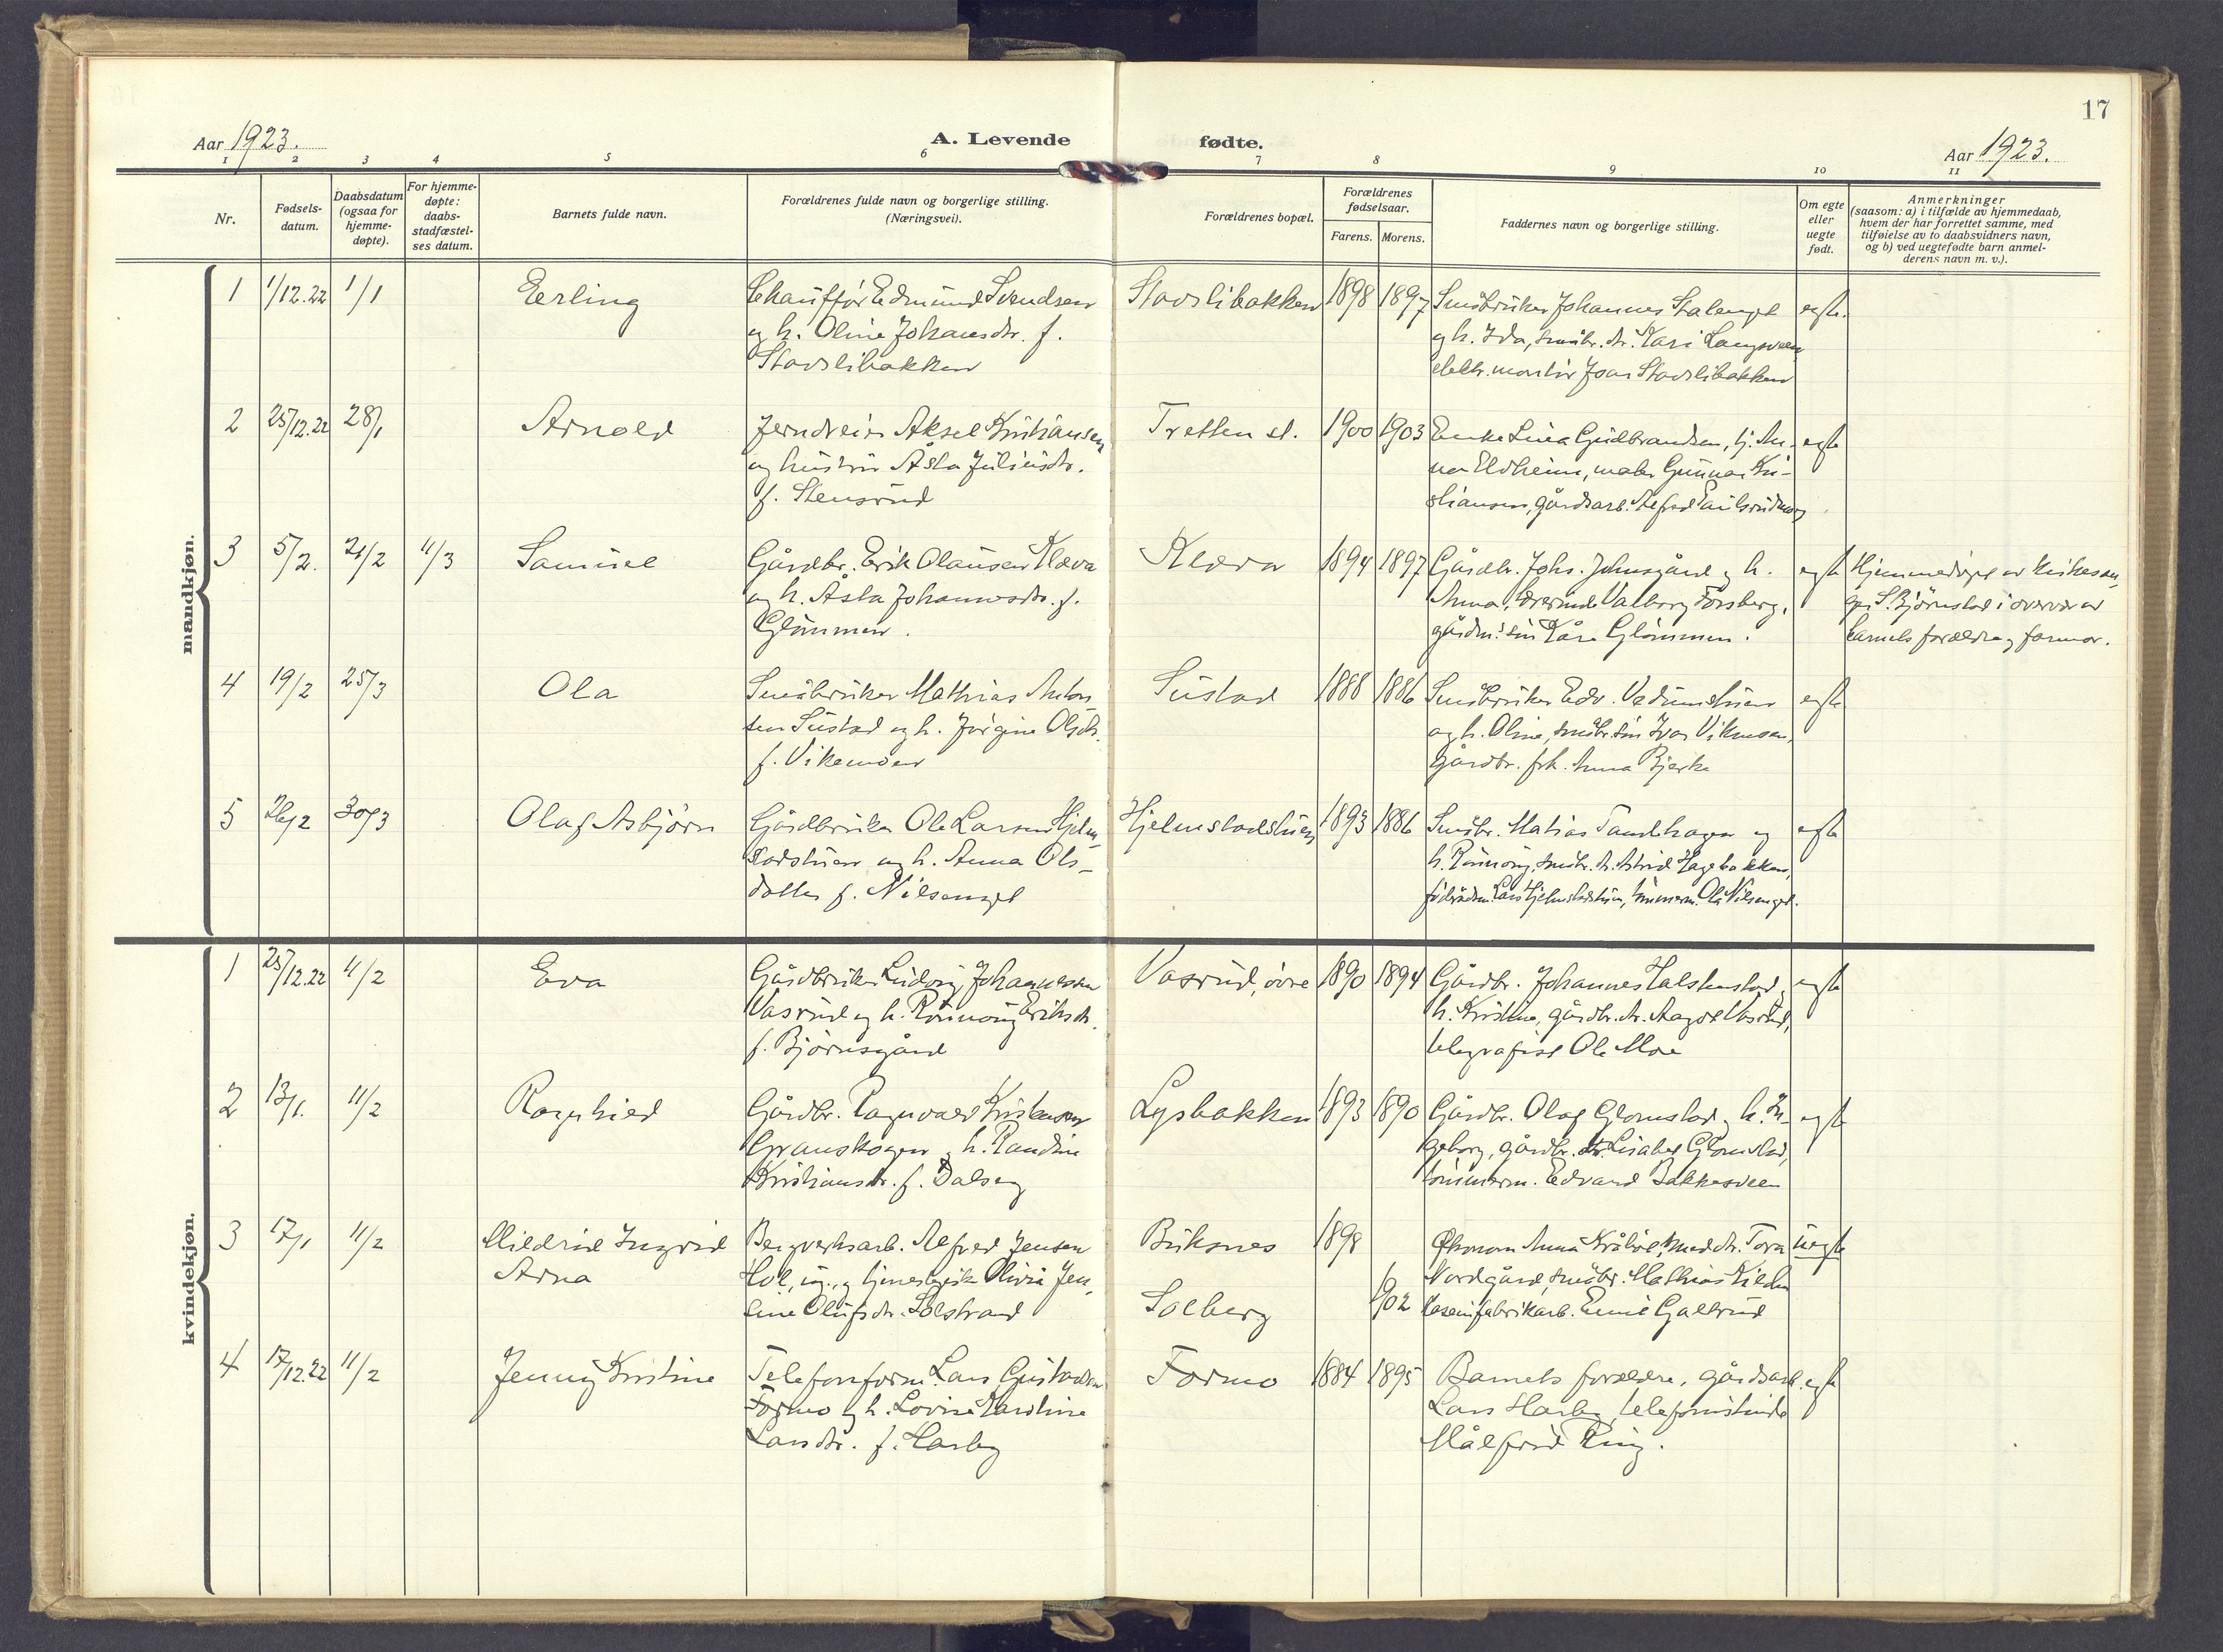 17
Aar 1923.
A. Levende fødte.
Aar 1923.
1 2 3 4 5 6 7 8 9 10 11
Nr.
Fødsels-
datum.
Daabsdatum
(ogsaa for
hjemme-
døpte).
For hjemme-
døpte:
daabs-
stadfæstel-
ses datum.
Barnets fulde navn.
Forældrenes fulde navn og borgerlige stilling.
(Næringsvei).
Forældrenes bopæl.
Forældrenes
fødselsaar.
Farens. Morens.
Faddernes navn og borgerlige stilling.
Om egte
eller
uegte
født.
Anmerkninger
(saasom: a) i tilfælde av hjemmedaab,
hvem der har forrettet samme, med
tilføielse av to daabsvidners navn,
og b) ved uegtefødte barn anmel-
derens navn m. v.).
mandkjøn.
1 1/12.22 1/1 Erling
Chauffør Edmund Svendsen
og h. Oline Johansdtr. f.
Stavslibakken
Stavslibakken 1898 1897
Småbruker Johannes Stalenget
og h. Ida, småbr. dt. Kari Langsveen
elektr. montør Joar Stavslibakken
egte.
2 25/12.22 28/1 Arnold
Jerndreier Aksel Kristiansen
og hustru Åsta Juliusdtr.
f. Stensrud
Tretten st. 1900 1903
Enke Lina Gudbrandsen, tj. An-
na Eldheim, maler Gunnar Kri-
stiansen, gårdsarb. Alfred
egte
3 5/2. 21/2 11/3 Samuel
Gårdbr. Erik Olausen Kleva
og h. Åsta Johannesdtr. f.
Glømmen.
Kleva 1894 1897
Gårdbr. Johs. Johnsgård og h.
Anna, lærerinde Valborg Forsberg,
gårdm. søn Kåre Glømmen.
egte
Hjemmedøpt av kirkesan-
ger S. Bjørnstad i overvær av
barnets forældre og farmor.
4 19/2 25/3 Ola
Småbruker Mathias Anton-
sen Sustad og h. Jørgine Olsdt.
f. Vikemoen
Sustad 1888 1886
Småbruker Edv. Vedumstuen
og h. Oline, småbr. søn Ivar Vikmoen,
gårdbr. frk. Anna Bjerke
egte
5 26/2 30/3 Olaf Asbjørn
Gårdbruker Ole Larsen Hjelm-
stadstuen og h. Anna Ols-
datter f. Nilsenget
Hjelmstadstuen 1893 1886
Småbr. Matias Tandehagen og
h. Rønnaug, småbr. dt. Astrid Hagebakken,
føderådsm. Lars Hjelmstadstuen, tømmerm. Ole Nilsenget.
egte
kvindekjøn.
1 25/12.22 11/2 Eva
Gårdbruker Ludvig Johannessen
Vasrud og h. Rønnaug Eriksdt.
f. Bjørnsgård
Vasrud, øvre 1890 1894
Gårdbr. Johannes Talstenstad,
h. Kristine, gårdbr. dt. Aagot Vasrud,
telegrafist Ole Moe
egte
2 13/1. 11/2 Ragnhild
Gårdbr. Ragnvald Kristensen
Granskogen og h. Randine
Kristiansdtr. f. Dalseg
Lysbakken 1893 1890
Gårdbr. Olaf Glomstad, h. In-
geborg, gårdbr. dtr. Lisabet Glomstad,
tømmerm. Edvard Bakkesveen
egte
3 17/1 11/2 Mildrid Ingrid
Arna
Bergverksarb. Alfred Jensen
Hol, ug., og tjenestepike Olivia Jen-
sine Olufsdtr. Solstrand
Buksnes
Solberg
1898
1902
Økonom Anna Kråbøl, smed dt. Tora
Nordgård, småbr. Mathias Kilden
kaseinfabrikarb. Emil Galtrud
uegte
4 17/12.22 11/2 Jenny Kristine
Telefonform. Lars Gustavsen
Formo og h. Lovise Karoline
Larsdtr. f. Harby
Formo 1884 1895
Barnets forældre, gårdsarb.
Lars Harby, telefonistinde
Målfrid Ring.
egte